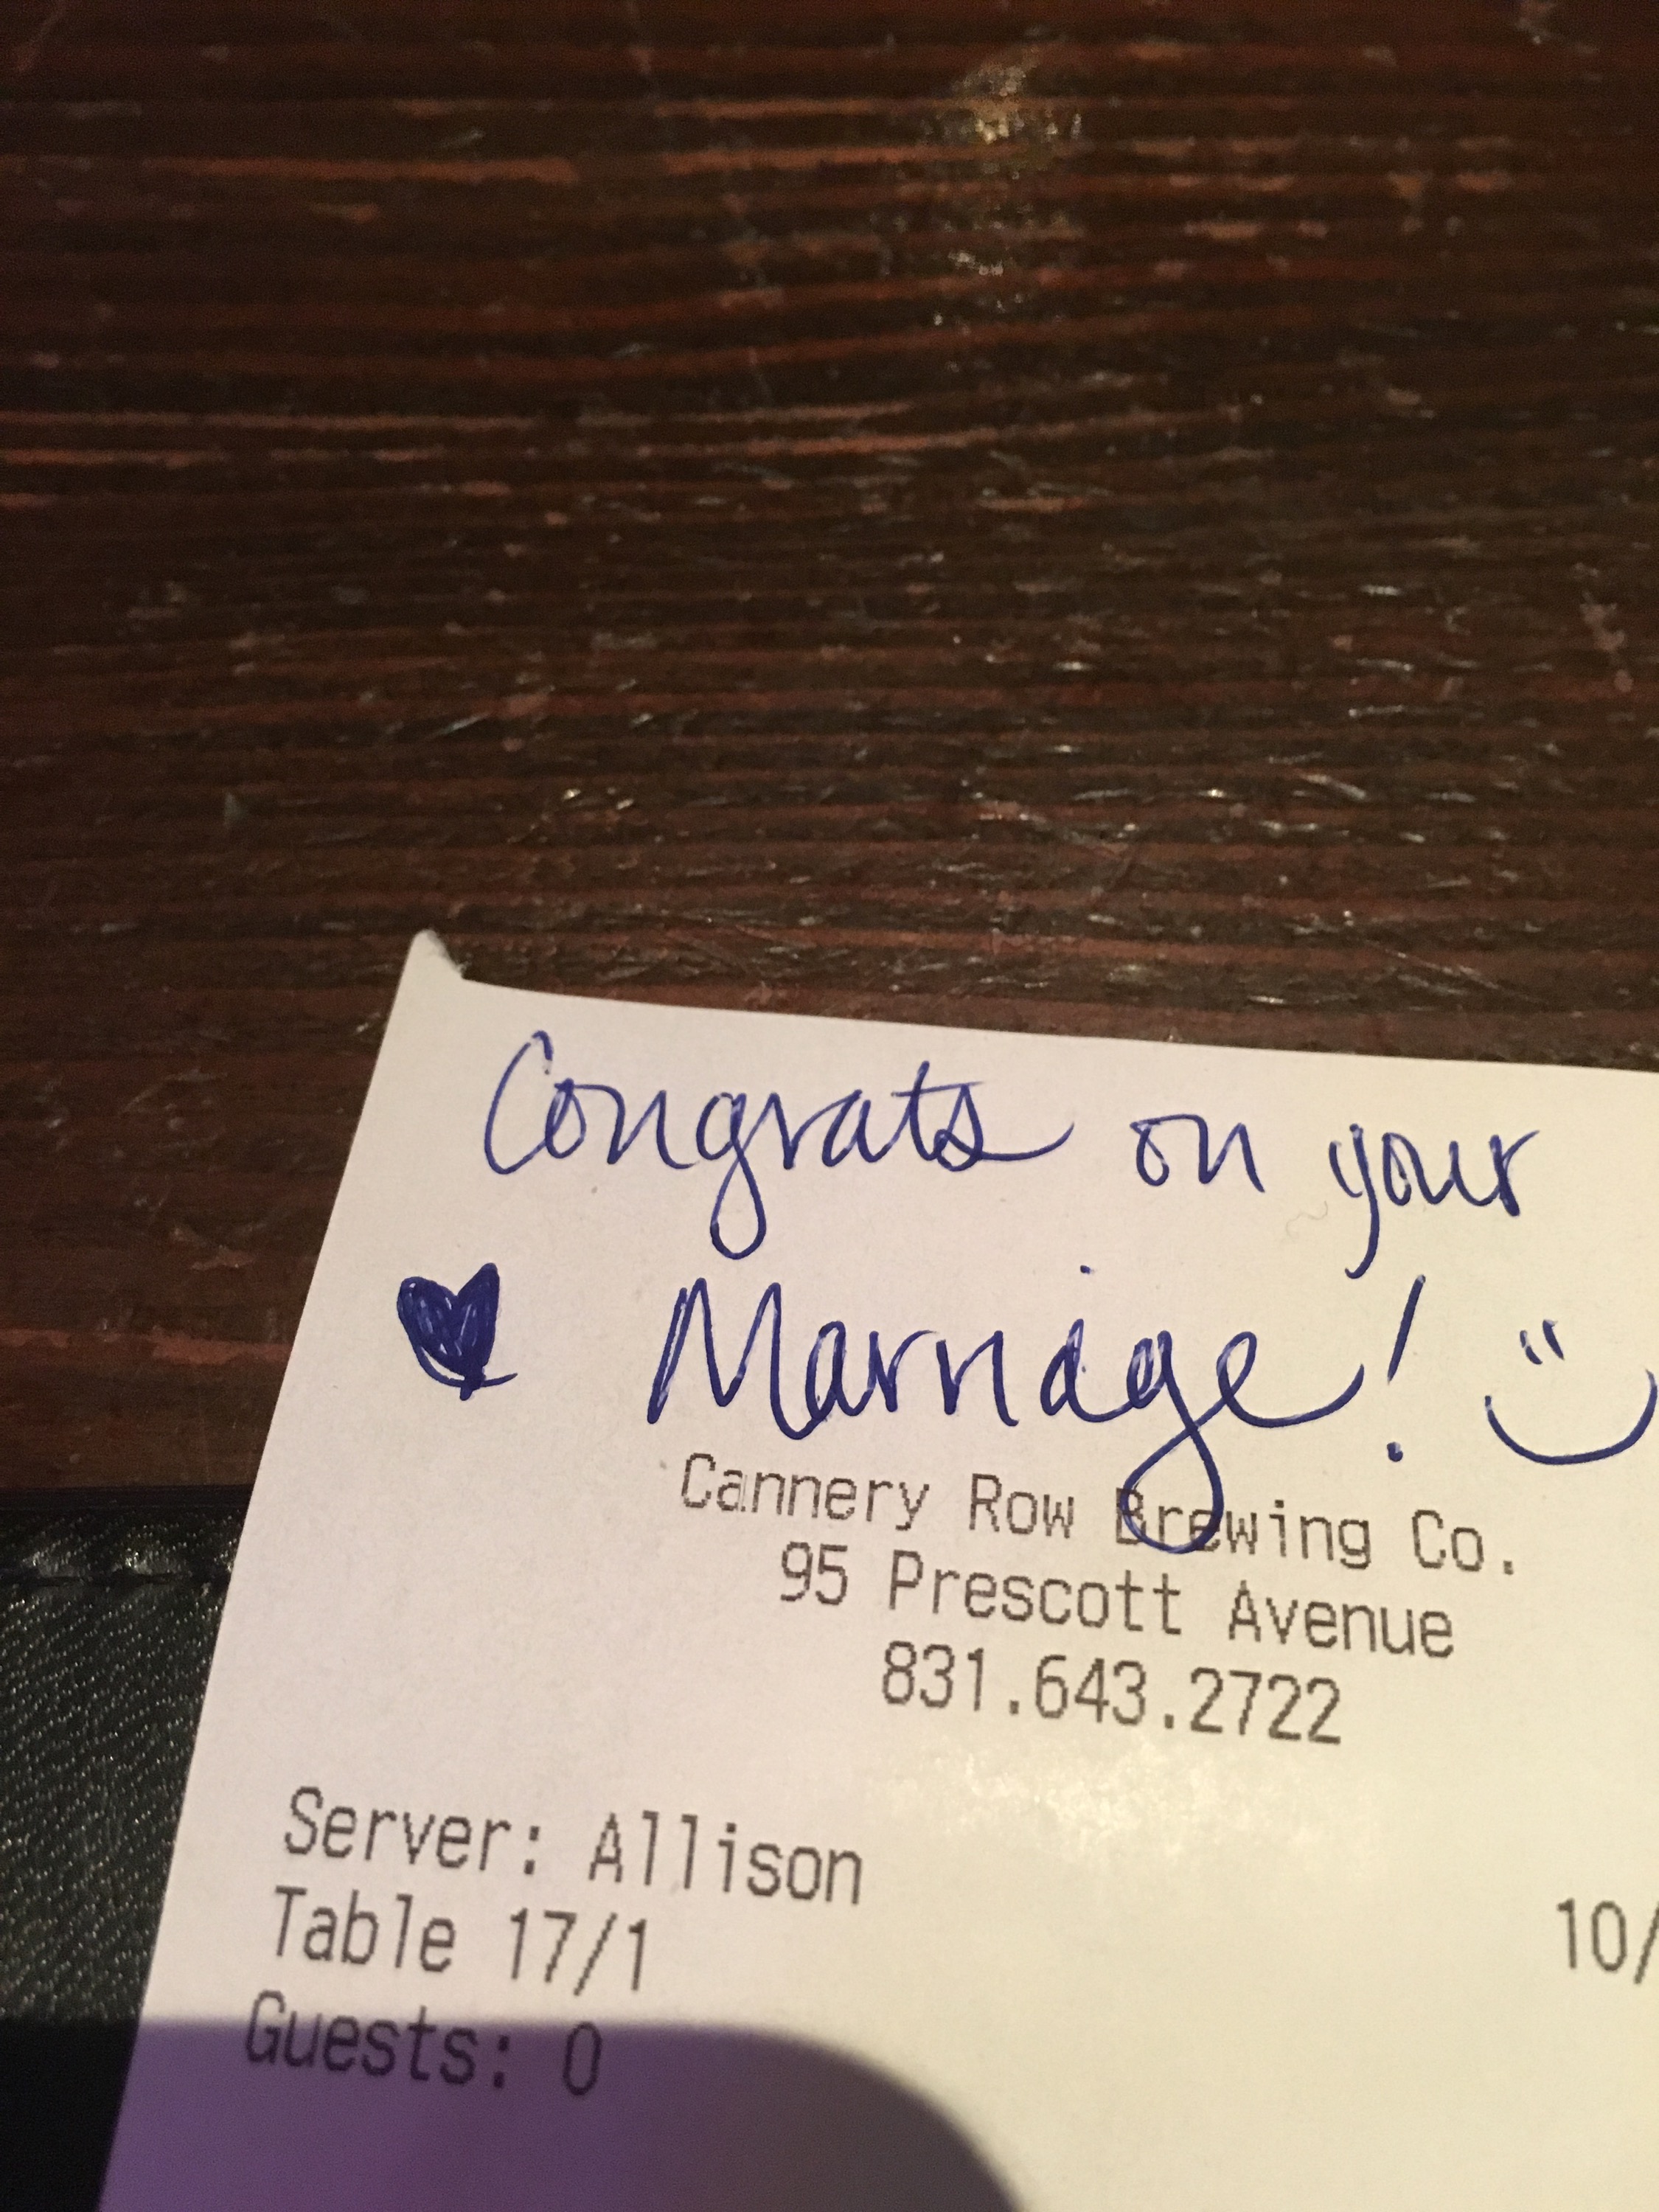 Congrats on your
Marriage!
Cannery Row Brewing Co.
95 Prescott Avenue
831.643.2722
Server: Allison
Table 17/1
10/
Guests: 0